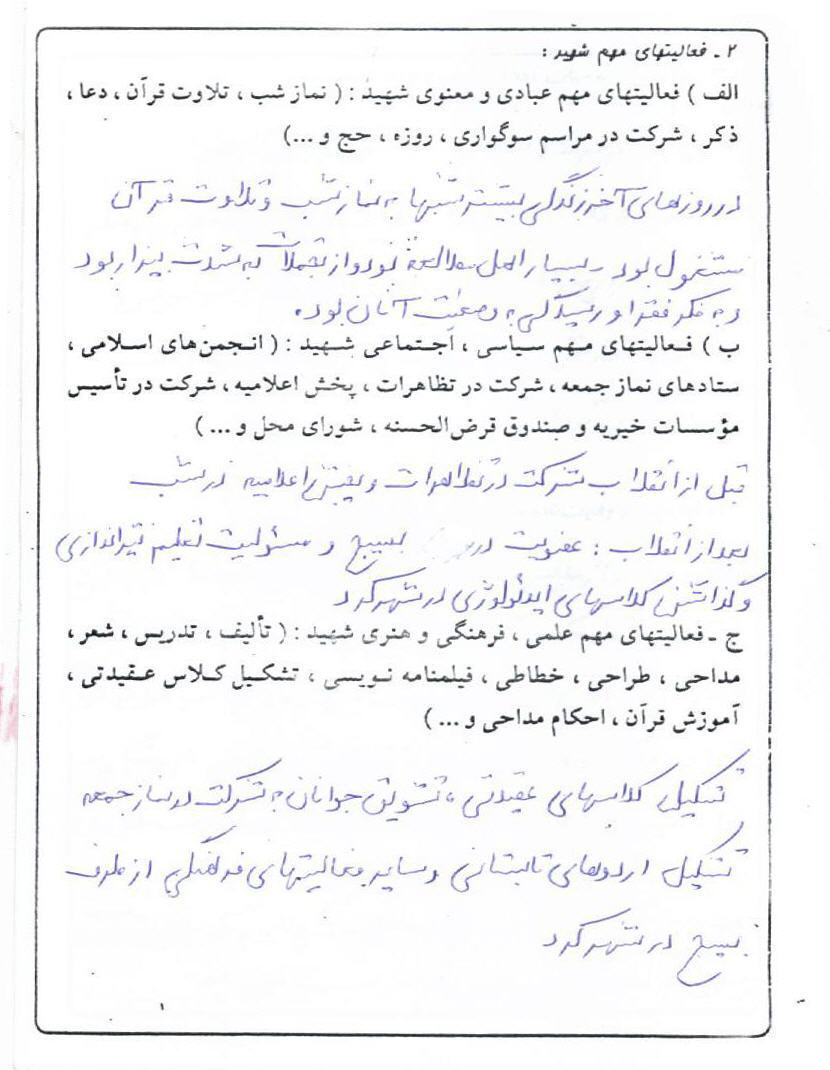 ۲ ـ فعالیتهای مهم شهید :
الف ) فعالیتهای مهم عبادی و معنوی شهید : ( نماز شب ، تلاوت قرآن ، دعا ،
ذکر ، شرکت در مراسم سوگواری ، روزه ، حج و ...)
در روزهای آخر زندگی بیشتر شبها به نماز شب و تلاوت قرآن
مشغول بود ـ بسیار اهل مطالعه بود و از تجملات به شدت بیزار بود
و به فکر فقرا و رسیدگی به وضعیت آنان بود.
ب ) فعالیتهای مهم سیاسی ، اجتماعی شهید : ( انجمن‌های اسلامی ،
ستادهای نماز جمعه ، شرکت در تظاهرات ، پخش اعلامیه ، شرکت در تأسیس
مؤسسات خیریه و صندوق قرض‌الحسنه ، شورای محل و ... )
قبل از انقلاب شرکت در تظاهرات و پخش اعلامیه در شب
بعد از انقلاب : عضویت در بسیج و مسئولیت تعلیم تیراندازی
و گذاشتن کلاسهای ایدئولوژی در شهرکرد
ج ـ فعالیتهای مهم علمی ، فرهنگی و هنری شهید : ( تألیف ، تدریس ، شعر ،
مداحی ، طراحی ، خطاطی ، فیلمنامه نویسی ، تشکیل کلاس عقیدتی ،
آموزش قرآن ، احکام مداحی و ... )
تشکیل کلاسهای عقیدتی ، تشویق جوانان به شرکت در نماز جمعه
تشکیل اردوهای تابستانی و سایر فعالیتهای فرهنگی از طرف
بسیج در شهرکرد
۱